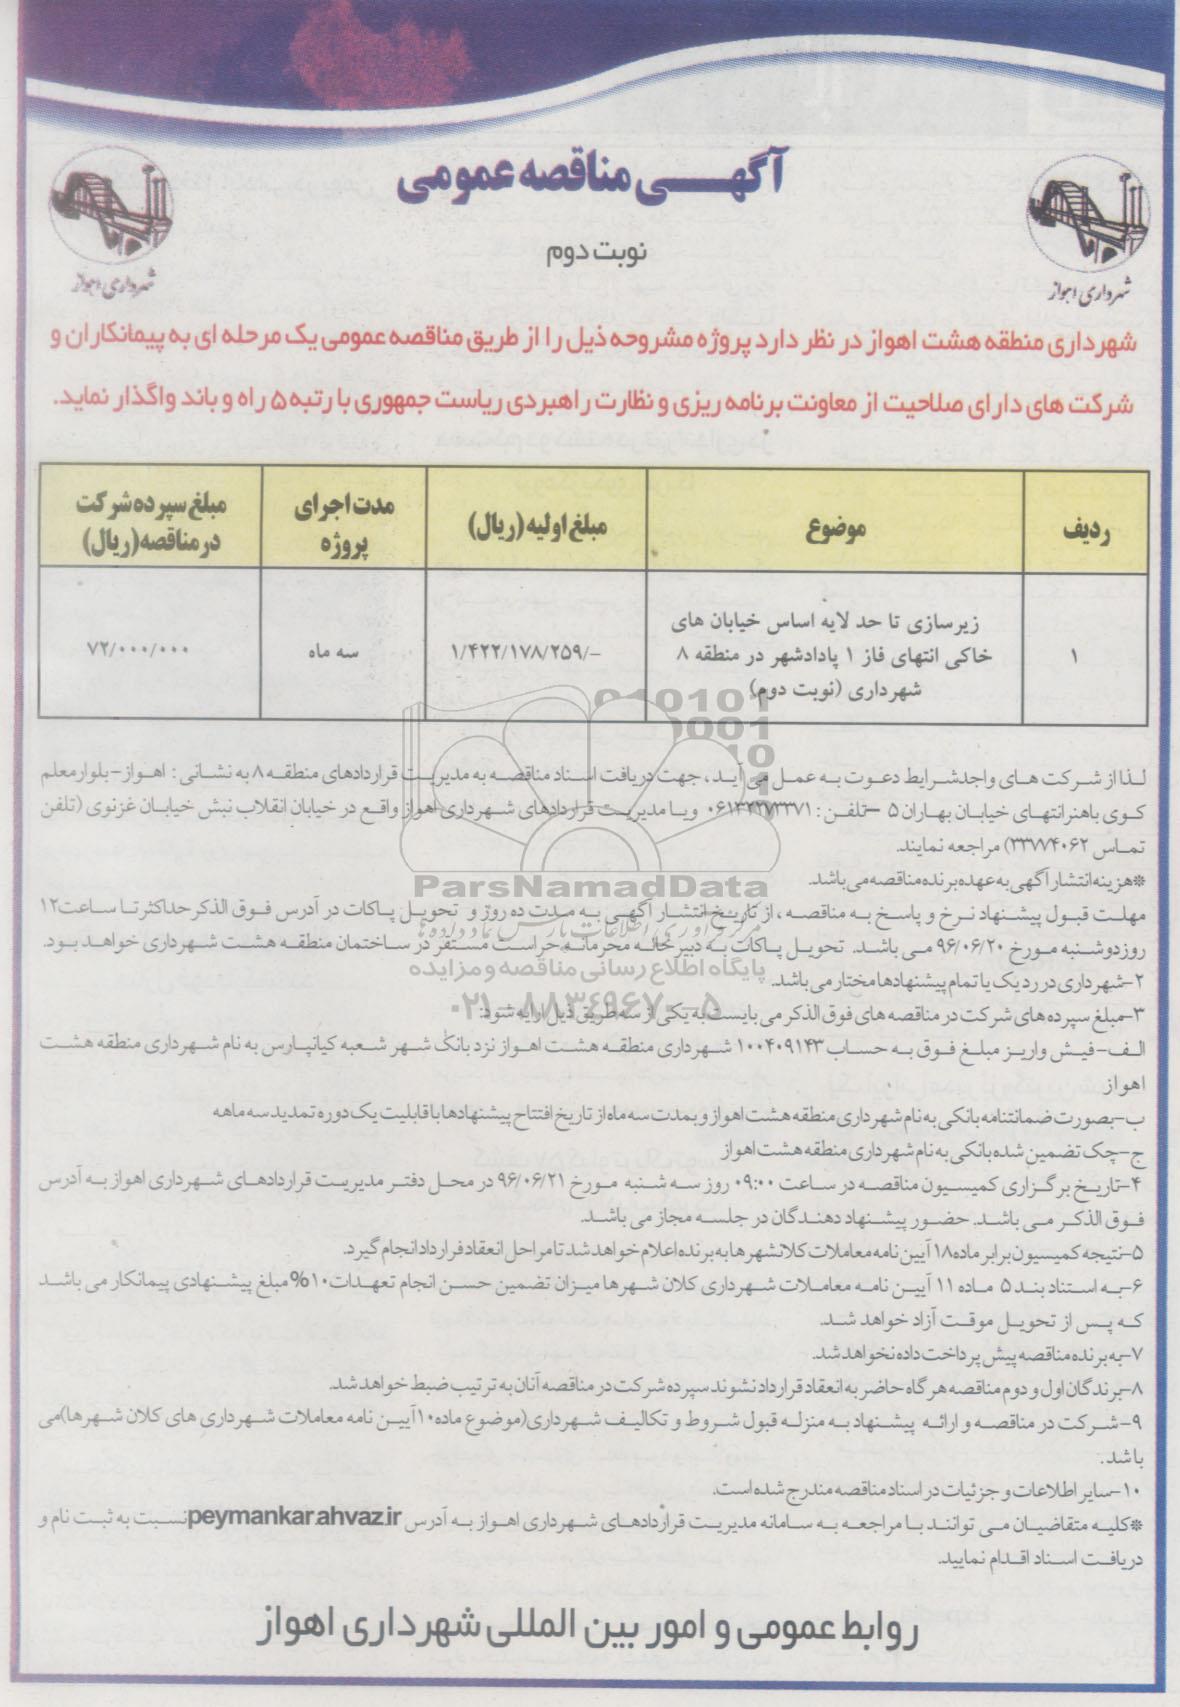 آگهی مناقصه عمومی
نوبت دوم
شهرداری اهواز
شهرداری اهواز
شهرداری منطقه هشت اهواز در نظر دارد پروژه مشروحه ذیل را از طریق مناقصه عمومی یک مرحله ای به پیمانکاران و
شرکت های دارای صلاحیت از معاونت برنامه ریزی و نظارت راهبردی ریاست جمهوری با رتبه ۵ راه و باند واگذار نماید.
ردیف
موضوع
مبلغ اولیه (ریال)
مدت اجرای
پروژه
مبلغ سپرده شرکت
در مناقصه (ریال)
۱
زیرسازی تا حد لایه اساس خیابان های
خاکی انتهای فاز ۱ پادادشهر در منطقه ۸
شهرداری (نوبت دوم)
۱/۴۲۲/۱۷۸/۲۵۹/-
سه ماه
۷۲/۰۰۰/۰۰۰
لذا از شرکت های واجدشرایط دعوت به عمل می آید ، جهت دریافت اسناد مناقصه به مدیریت قراردادهای منطقه ۸ به نشانی : اهواز-بلوارمعلم
کوی باهنرانتهای خیابان بهاران ۵ –تلفن : ۰۶۱۳۲۲۷۳۳۷۱ ویا مدیریت قراردادهای شهرداری اهواز واقع در خیابان انقلاب نبش خیابان غزنوی (تلفن
تماس ۳۳۷۷۴۰۶۲) مراجعه نمایند.
*هزینه انتشار آگهی به عهده برنده مناقصه می باشد.
مهلت قبول پیشنهاد نرخ و پاسخ به مناقصه ، از تاریخ انتشار آگهی به مدت ده روز و تحویل پاکات در آدرس فوق الذکر حداکثر تا ساعت۱۲
روزدوشنبه مورخ ۹۶/۰۶/۲۰ می باشد. تحویل پاکات به دبیرخانه محرمانه حراست مستقر در ساختمان منطقه هشت شهرداری خواهد بود.
۲-شهرداری در رد یک یا تمام پیشنهادها مختار می باشد.
۳-مبلغ سپرده های شرکت در مناقصه های فوق الذکر می بایست به یکی از سه طریق ذیل ارایه شود:
الف-فیش واریز مبلغ فوق به حساب ۱۰۰۴۰۹۱۴۳ شهرداری منطقه هشت اهواز نزد بانک شهر شعبه کیانپارس به نام شهرداری منطقه هشت
اهواز
ب-بصورت ضمانتنامه بانکی به نام شهرداری منطقه هشت اهواز و بمدت سه ماه از تاریخ افتتاح پیشنهادها با قابلیت یک دوره تمدید سه ماهه
ج-چک تضمین شده بانکی به نام شهرداری منطقه هشت اهواز
۴-تاریخ برگزاری کمیسیون مناقصه در ساعت ۰۹:۰۰ روز سه شنبه مورخ ۹۶/۰۶/۲۱ در محل دفتر مدیریت قراردادهای شهرداری اهواز به آدرس
فوق الذکر می باشد. حضور پیشنهاد دهندگان در جلسه مجاز می باشد.
۵-نتیجه کمیسیون برابر ماده۱۸ آیین نامه معاملات کلانشهرها به برنده اعلام خواهد شد تا مراحل انعقاد قرارداد انجام گیرد.
۶-به استناد بند ۵ ماده ۱۱ آیین نامه معاملات شهرداری کلان شهرها میزان تضمین حسن انجام تعهدات۱۰% مبلغ پیشنهادی پیمانکار می باشد
که پس از تحویل موقت آزاد خواهد شد.
۷-به برنده مناقصه پیش پرداخت داده نخواهد شد.
۸-برندگان اول و دوم مناقصه هرگاه حاضر به انعقاد قرارداد نشوند سپرده شرکت در مناقصه آنان به ترتیب ضبط خواهد شد.
۹-شرکت در مناقصه و ارائه پیشنهاد به منزله قبول شروط و تکالیف شهرداری(موضوع ماده۱۰آیین نامه معاملات شهرداری های کلان شهرها)می
باشد.
۱۰-سایر اطلاعات و جزئیات در اسناد مناقصه مندرج شده است.
*کلیه متقاضیان می توانند با مراجعه به سامانه مدیریت قراردادهای شهرداری اهواز به آدرس peymankar.ahvaz.ir نسبت به ثبت نام و
دریافت اسناد اقدام نمایید.
روابط عمومی و امور بین المللی شهرداری اهواز
ParsNamadData
مرکز فرآوری اطلاعات پارس نماد داده ها
پایگاه اطلاع رسانی مناقصه و مزایده
۰۲۱-۸۸۳۴۹۶۷۰-۵